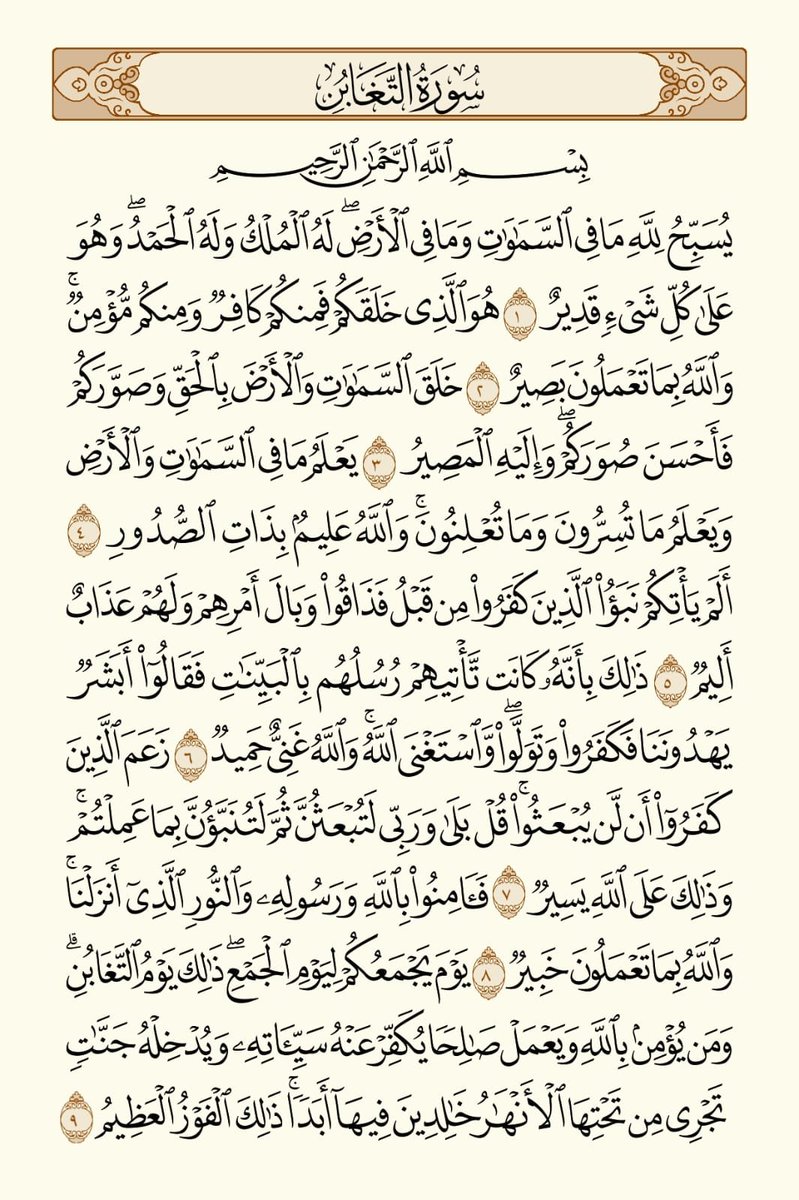 سُورَةُ التَّغَابُنِ
بِسْمِ ٱللَّهِ ٱلرَّحْمَٰنِ ٱلرَّحِيمِ
يُسَبِّحُ لِلَّهِ مَا فِى ٱلسَّمَٰوَٰتِ وَمَا فِى ٱلْأَرْضِۖ لَهُ ٱلْمُلْكُ وَلَهُ ٱلْحَمْدُۖ وَهُوَ
عَلَىٰ كُلِّ شَىْءٍ قَدِيرٌ ١ هُوَ ٱلَّذِى خَلَقَكُمْ فَمِنكُمْ كَافِرٌ وَمِنكُم مُّؤْمِنٌۚ
وَٱللَّهُ بِمَا تَعْمَلُونَ بَصِيرٌ ٢ خَلَقَ ٱلسَّمَٰوَٰتِ وَٱلْأَرْضَ بِٱلْحَقِّ وَصَوَّرَكُمْ
فَأَحْسَنَ صُوَرَكُمْۖ وَإِلَيْهِ ٱلْمَصِيرُ ٣ يَعْلَمُ مَا فِى ٱلسَّمَٰوَٰتِ وَٱلْأَرْضِ
وَيَعْلَمُ مَا تُسِرُّونَ وَمَا تُعْلِنُونَۚ وَٱللَّهُ عَلِيمٌۢ بِذَاتِ ٱلصُّدُورِ ٤
أَلَمْ يَأْتِكُمْ نَبَؤُا۟ ٱلَّذِينَ كَفَرُوا۟ مِن قَبْلُ فَذَاقُوا۟ وَبَالَ أَمْرِهِمْ وَلَهُمْ عَذَابٌ
أَلِيمٌ ٥ ذَٰلِكَ بِأَنَّهُۥ كَانَت تَّأْتِيهِمْ رُسُلُهُم بِٱلْبَيِّنَٰتِ فَقَالُوٓا۟ أَبَشَرٌ
يَهْدُونَنَا فَكَفَرُوا۟ وَتَوَلَّوا۟ۖ وَّٱسْتَغْنَى ٱللَّهُۚ وَٱللَّهُ غَنِىٌّ حَمِيدٌ ٦ زَعَمَ ٱلَّذِينَ
كَفَرُوٓا۟ أَن لَّن يُبْعَثُوا۟ۚ قُلْ بَلَىٰ وَرَبِّى لَتُبْعَثُنَّ ثُمَّ لَتُنَبَّؤُنَّ بِمَا عَمِلْتُمْۚ
وَذَٰلِكَ عَلَى ٱللَّهِ يَسِيرٌ ٧ فَـَٔامِنُوا۟ بِٱللَّهِ وَرَسُولِهِۦ وَٱلنُّورِ ٱلَّذِىٓ أَنزَلْنَاۚ
وَٱللَّهُ بِمَا تَعْمَلُونَ خَبِيرٌ ٨ يَوْمَ يَجْمَعُكُمْ لِيَوْمِ ٱلْجَمْعِۖ ذَٰلِكَ يَوْمُ ٱلتَّغَابُنِۗ
وَمَن يُؤْمِنۢ بِٱللَّهِ وَيَعْمَلْ صَٰلِحًا يُكَفِّرْ عَنْهُ سَيِّـَٔاتِهِۦ وَيُدْخِلْهُ جَنَّٰتٍ
تَجْرِى مِن تَحْتِهَا ٱلْأَنْهَٰرُ خَٰلِدِينَ فِيهَآ أَبَدًاۚ ذَٰلِكَ ٱلْفَوْزُ ٱلْعَظِيمُ ٩